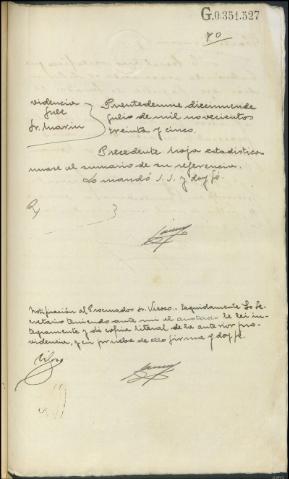 G.0.351.527
70
Providencia
Juez
Sr. Marin
Puentedeume diecinueve de
julio de mil novecientos
treinta y cinco.
Precedente hoja estadistica
unase al sumario de su referencia.
Lo mandó S.S. y doy fe.
Notificación al Procurador Sr. Veloso. Seguidamente Yo Se-
cretario teniendo ante mi el anotado le lei in-
tegramente y di copia literal de la anterior pro-
videncia, y en prueba de ello firma y doy fe.